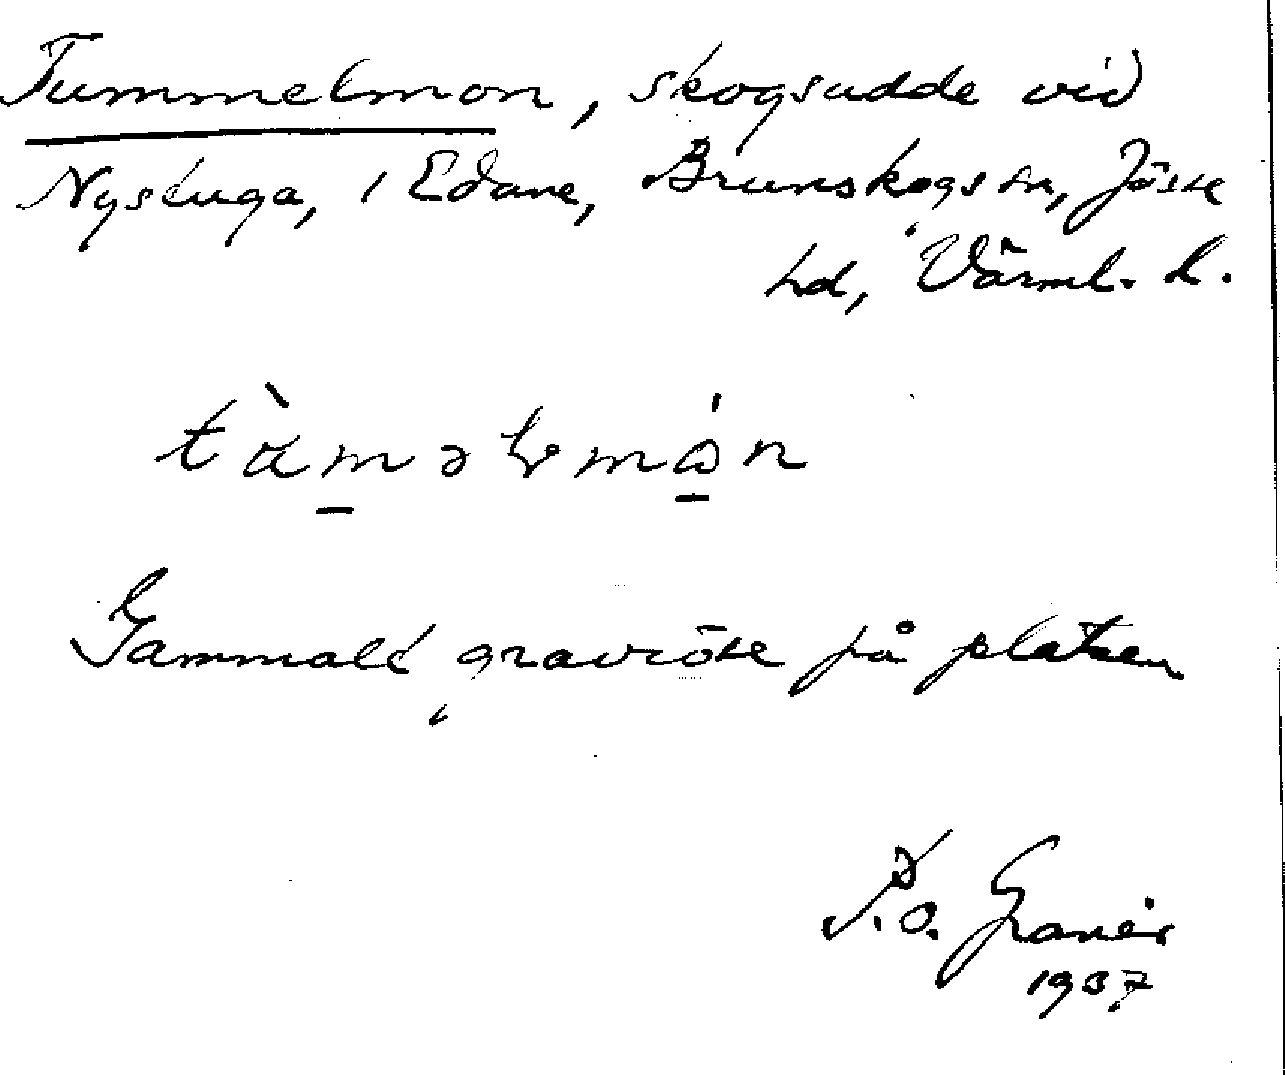 Tummelmon, skogsudde vid
Nystuga, i Edane, Brunskogs sn, Jösse
hd, Värml. l.
tàməlmón
Gammalt gravröse på platsen
P.O. Granér
1937